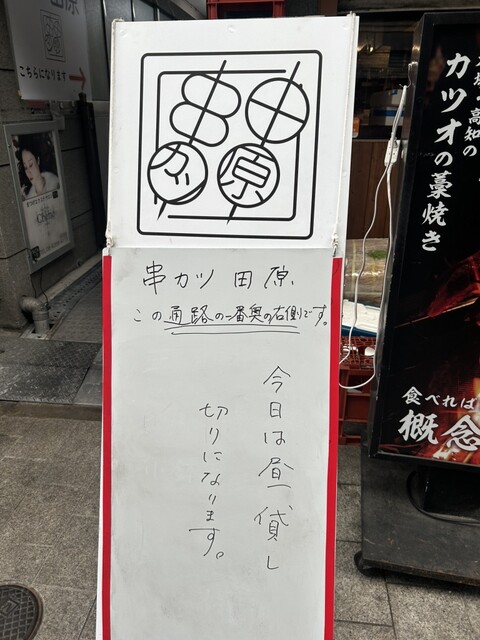 串カツ 田原
この通路の一番奥の右側です。
今日は昼貸し
切りになります。
田原
こちらになります
高知の
カツオの藁焼き
食べれば
概念